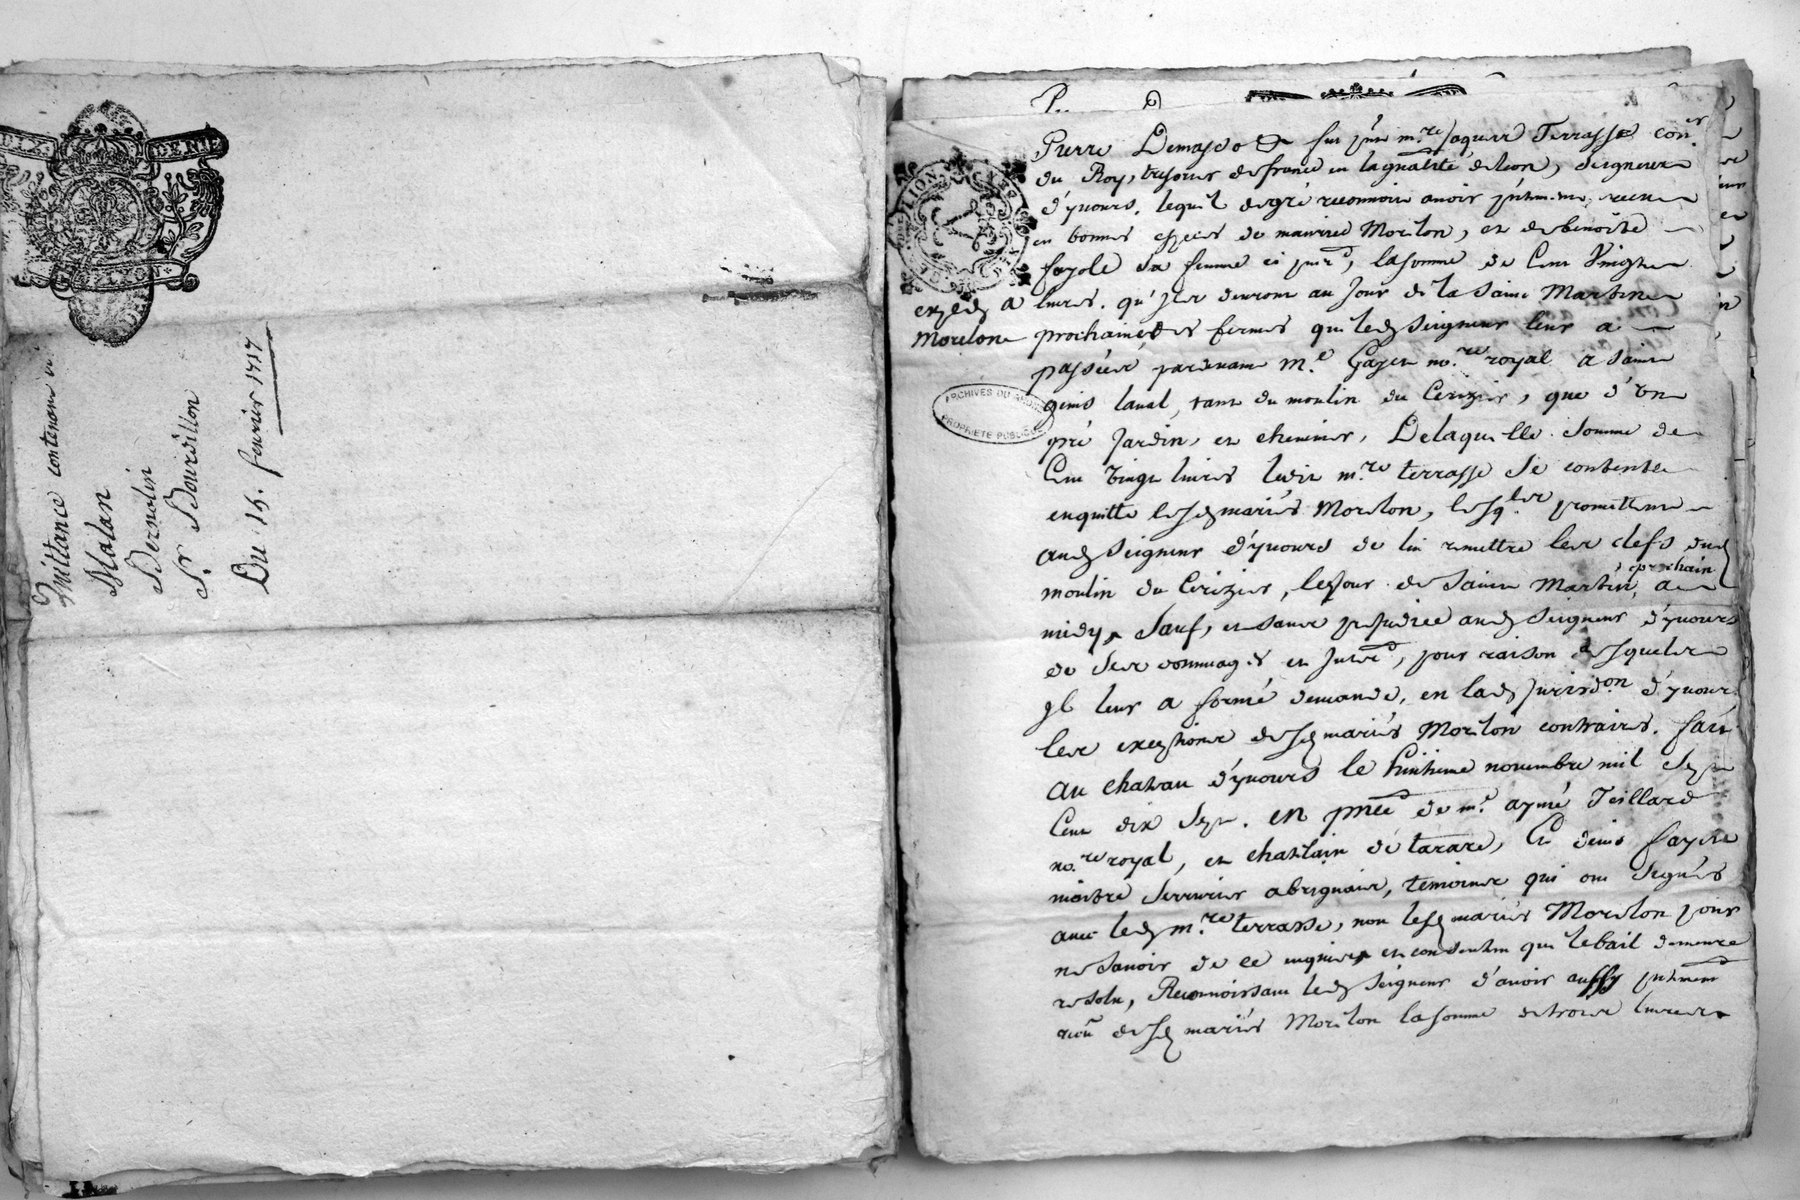 DIX DENIE
LYON
Quittance contenant
Malan
Bernolin
Sr Bourdillon
Du 15. feurier 1717
ARCHIVES DU RHONE
PROPRIETE PUBLIQUE
exped a
Morelon
Pierre fut pnt m.re Jaques Terrasse con.er
du Roy, tresorier de france en la generalité de lion, Seigneur
d'yuours, lequel de gré reconnoit auoir pntement receu
en bonnes especes de maurice Morelon, et de benoite
fayole sa femme ci pnt, la somme de Cent Vingt
liures. qu'Jls deuront au Jour de la Saint Martin
prochaine des fermes que led Seigneur leur a
passées pardeuant M.e Gayet no.re royal a Saint
genis laual, tant du moulin du Cerizier, que d'Vn
pré Jardin, et cheneuier, De laquelle somme de
Cent Vingt liures ledit m.re terrasse Se contente
en quitte lesd mariés Morelon, lesq.ler promettent
aud Seigneur d'yuours de lui remettre les clefs dud
moulin du Cerizier, le Jour de Saint Martin prochain, a
midy, Sauf, et sans prejudice aud Seigneur d'yuours
de Ses dommages et Jnter, pour raison desquels
Jl leur a formé demande, en lad Jurisd.on d'yuours
les exeptions desd mariés Morelon contraires. fait
au chateau d'yuours le huitieme nouembre mil Sept
Cent dix Sept. en pnce de m.e aymé Teillard
no.re royal, et chatelain de tarare, Et denis fayet
maitre Serrurier a brignais, temoins qui ont Signés
auec led m.re terrasse, non lesd mariés Morelon pour
ne Sauoir de ce enquis, et consentent que le bail demeure
resolu, Reconnoissant led Seigneur d'auoir aussy pntement
receu desd mariés Morelon la somme de trois liures